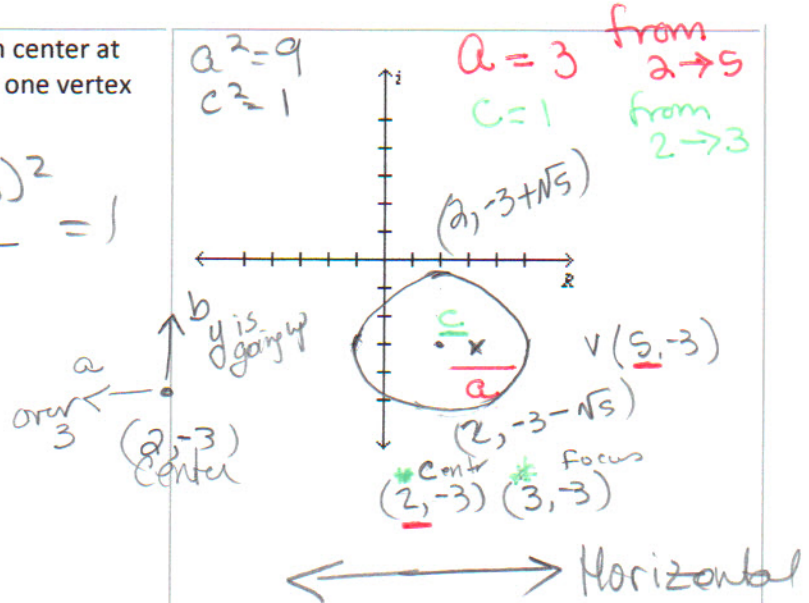 n center at
one vertex
)²
= 1
a² = 9
c² = 1
a = 3
from
2→5
c = 1
from
2→3
i
(2, -3+√5)
R
b
y is
going up
a
over
3
(2,-3)
Center
c
a
V (5,-3)
(2, -3-√5)
* Centr
* Focus
(2,-3) (3,-3)
Horizontal